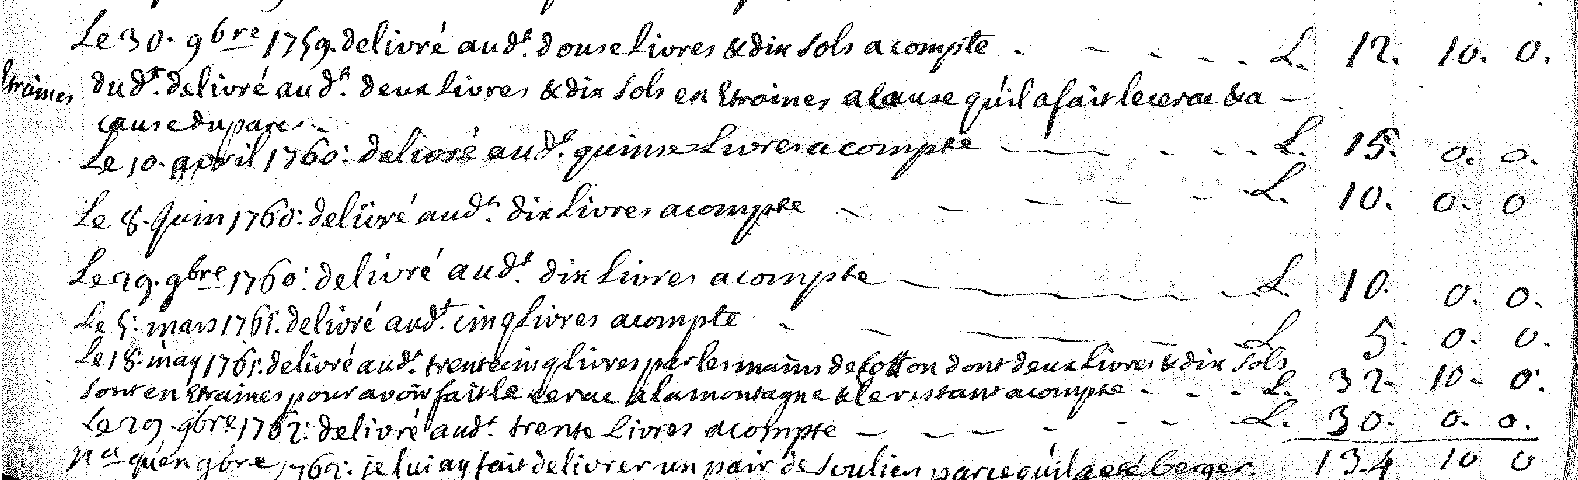 Le 30. 9bre 1759. delivré aud.t douse livres & dix sols acompte - - - - L. 12. 10. 0.
Etraines dud.t delivré aud.t deux livres & dix sols en Etraines a cause qu'il a fait le cerac & a -
cause du parc -
Le 10. april 1760: delivré aud.t quinse Livres a compte - - - - L. 15. 0. 0.
Le 8. Juin 1760: delivré aud.t dix livres acompte - - - - L. 10. 0. 0
Le 29. 9bre 1760: delivré aud.t dix livres acompte - - - - L. 10. 0. 0.
Le 5: mars 1761. delivré aud.t cinq livres acompte - - - - L 5. 0. 0.
Le 18: may 1761: delivré aud.t trente cinq livres par les mains de cotton dont deux livres & dix sols
sont en Etraines pour avoir fait le cerac a la montagne & le restant acompte - - - L. 32. 10. 0.
Le 29. 9bre 1762: delivré aud.t trente livres acompte - - - - L. 30. 0. 0.
qu'en 9bre 1762: je lui ay fait delivrer un pair de soulier parce qu'il a eté berger 134 10 0